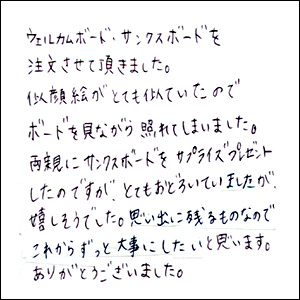 ウェルカムボード・サンクスボードを
注文させて頂きました。
似顔絵がとても似ていたので
ボードを見ながら照れてしまいました。
両親にサンクスボードをサプライズプレゼント
したのですが、とてもおどろいていましたが、
嬉しそうでした。思い出に残るものなので
これからずっと大事にしたいと思います。
ありがとうございました。